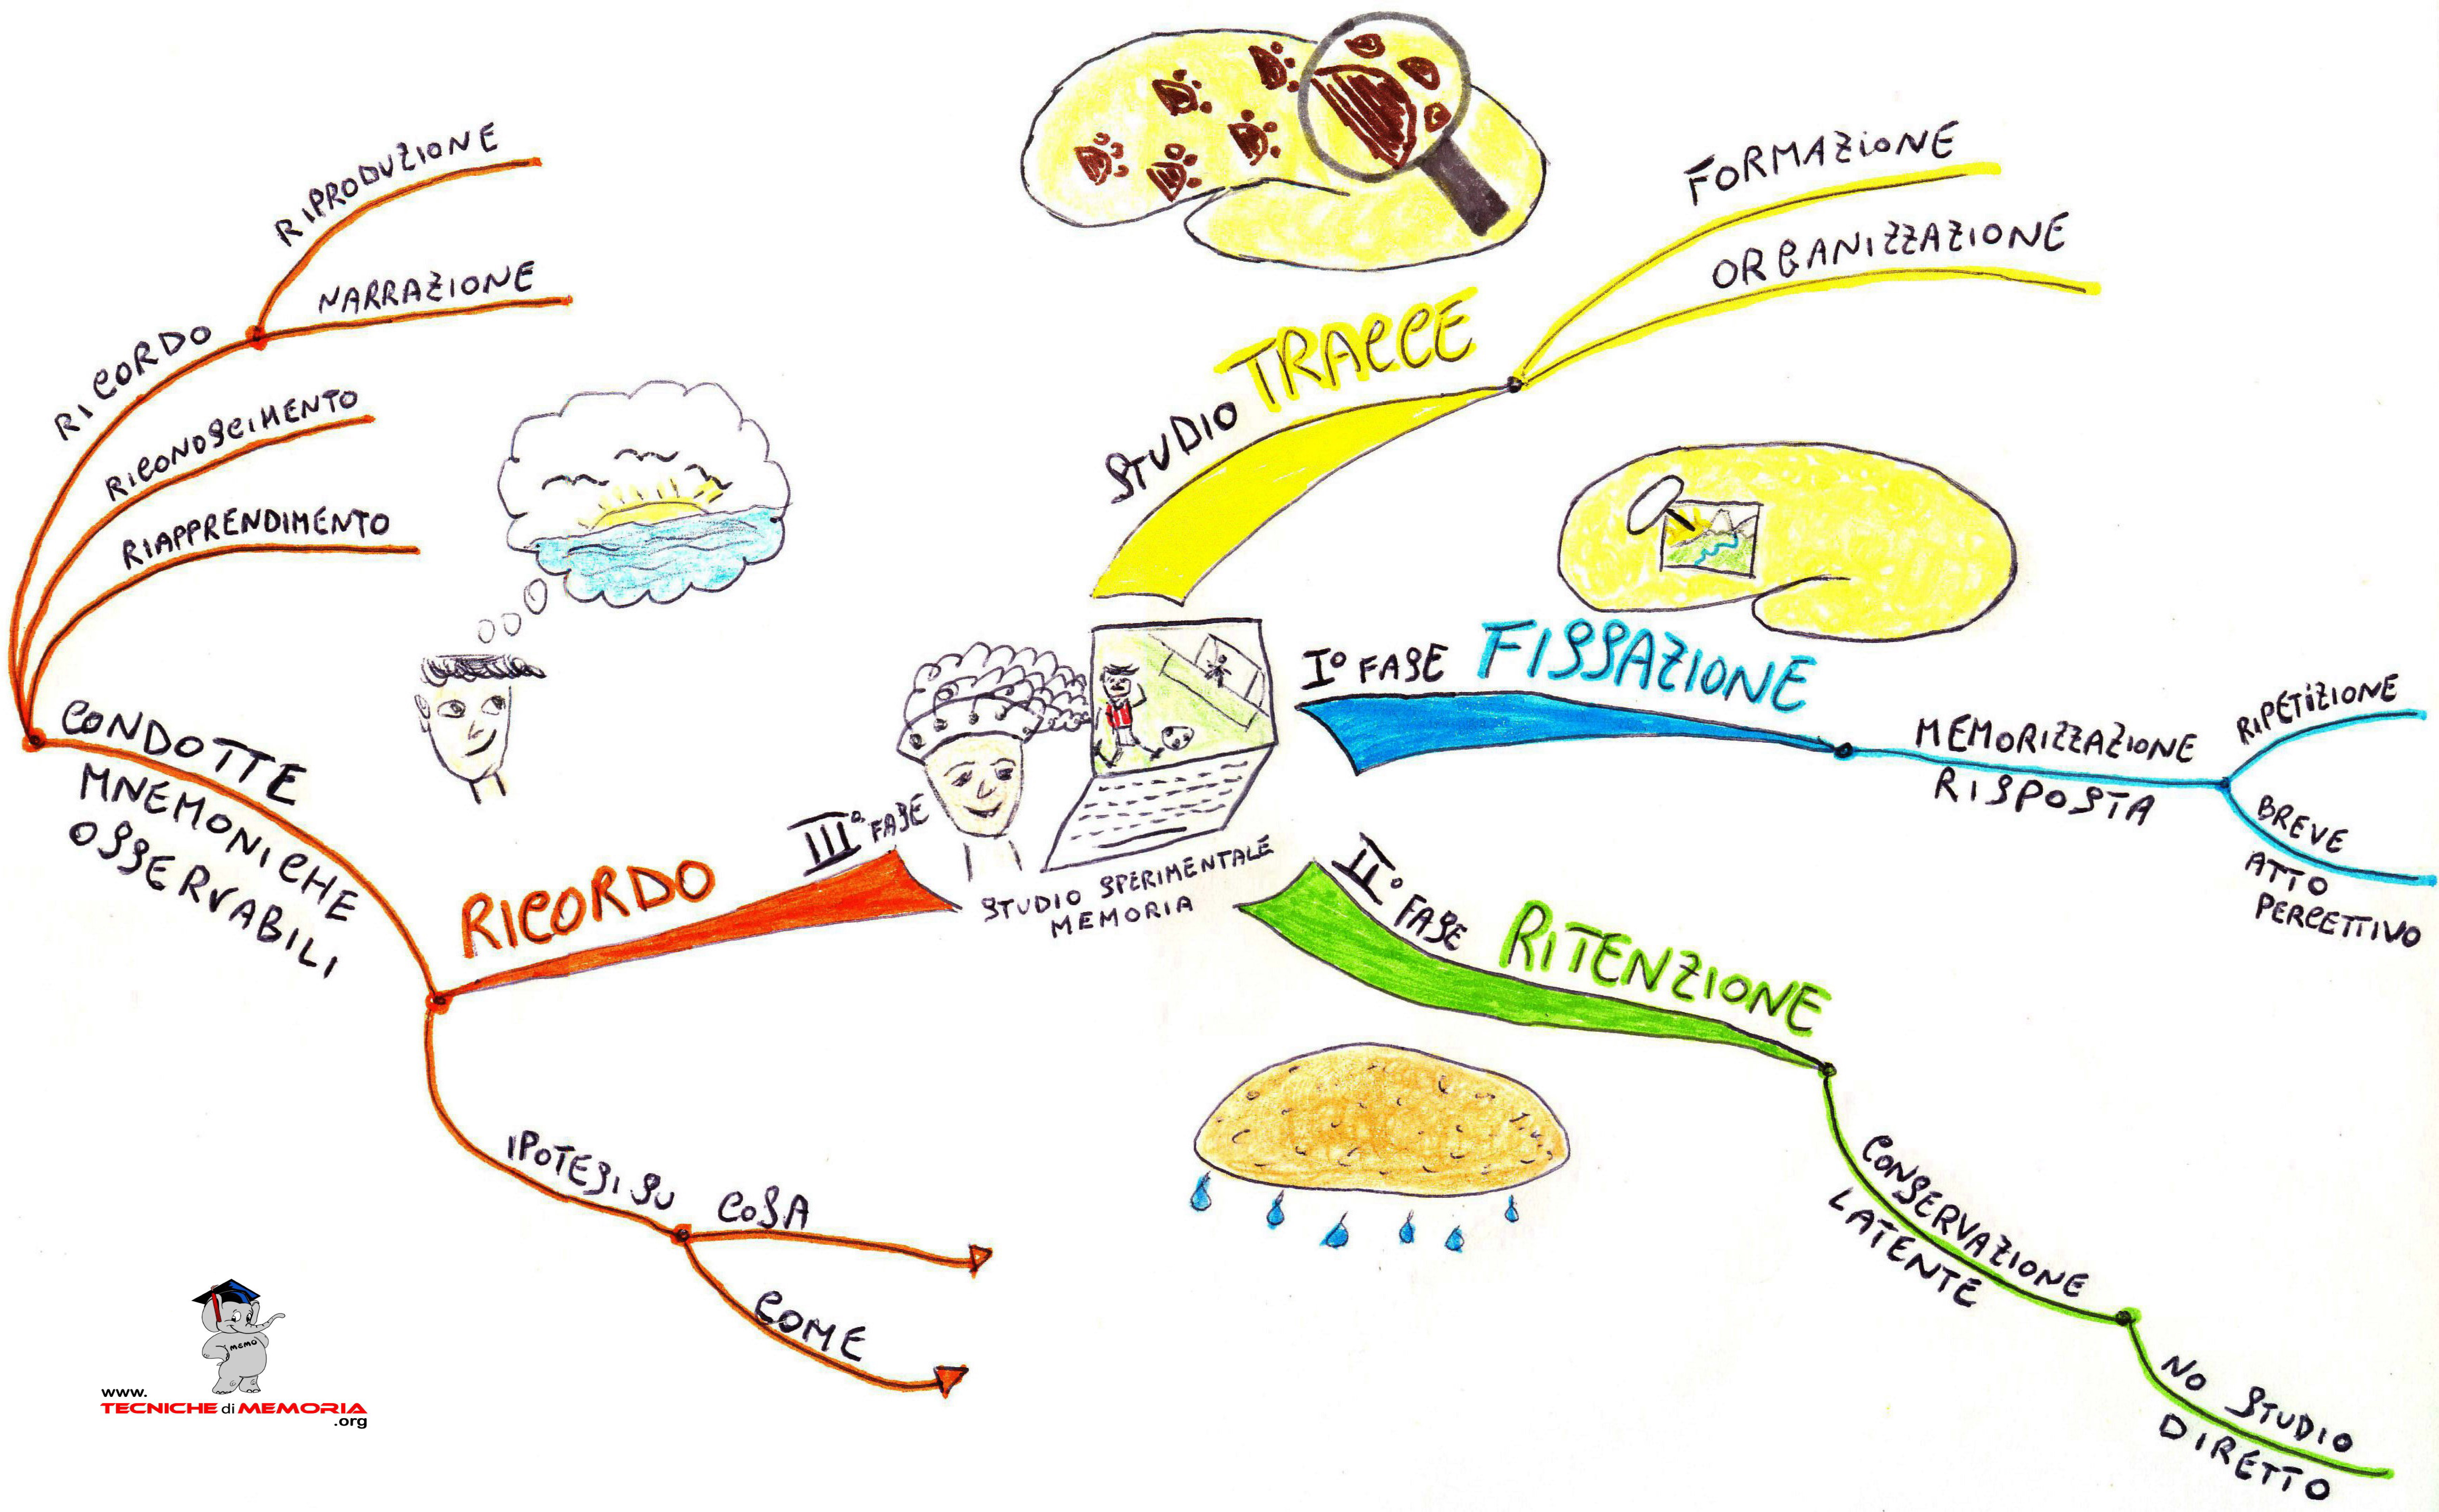 STUDIO SPERIMENTALE
MEMORIA
STUDIO TRACCE
FORMAZIONE
ORGANIZZAZIONE
I° FASE FISSAZIONE
MEMORIZZAZIONE
RISPOSTA
RIPETIZIONE
BREVE
ATTO
PERCETTIVO
II° FASE RITENZIONE
CONSERVAZIONE
LATENTE
NO STUDIO
DIRETTO
III° FASE
RICORDO
CONDOTTE
MNEMONICHE
OSSERVABILI
RICORDO
RIPRODUZIONE
NARRAZIONE
RICONOSCIMENTO
RIAPPRENDIMENTO
IPOTESI SU
COSA
COME
MEMO
www.
TECNICHE di MEMORIA
.org